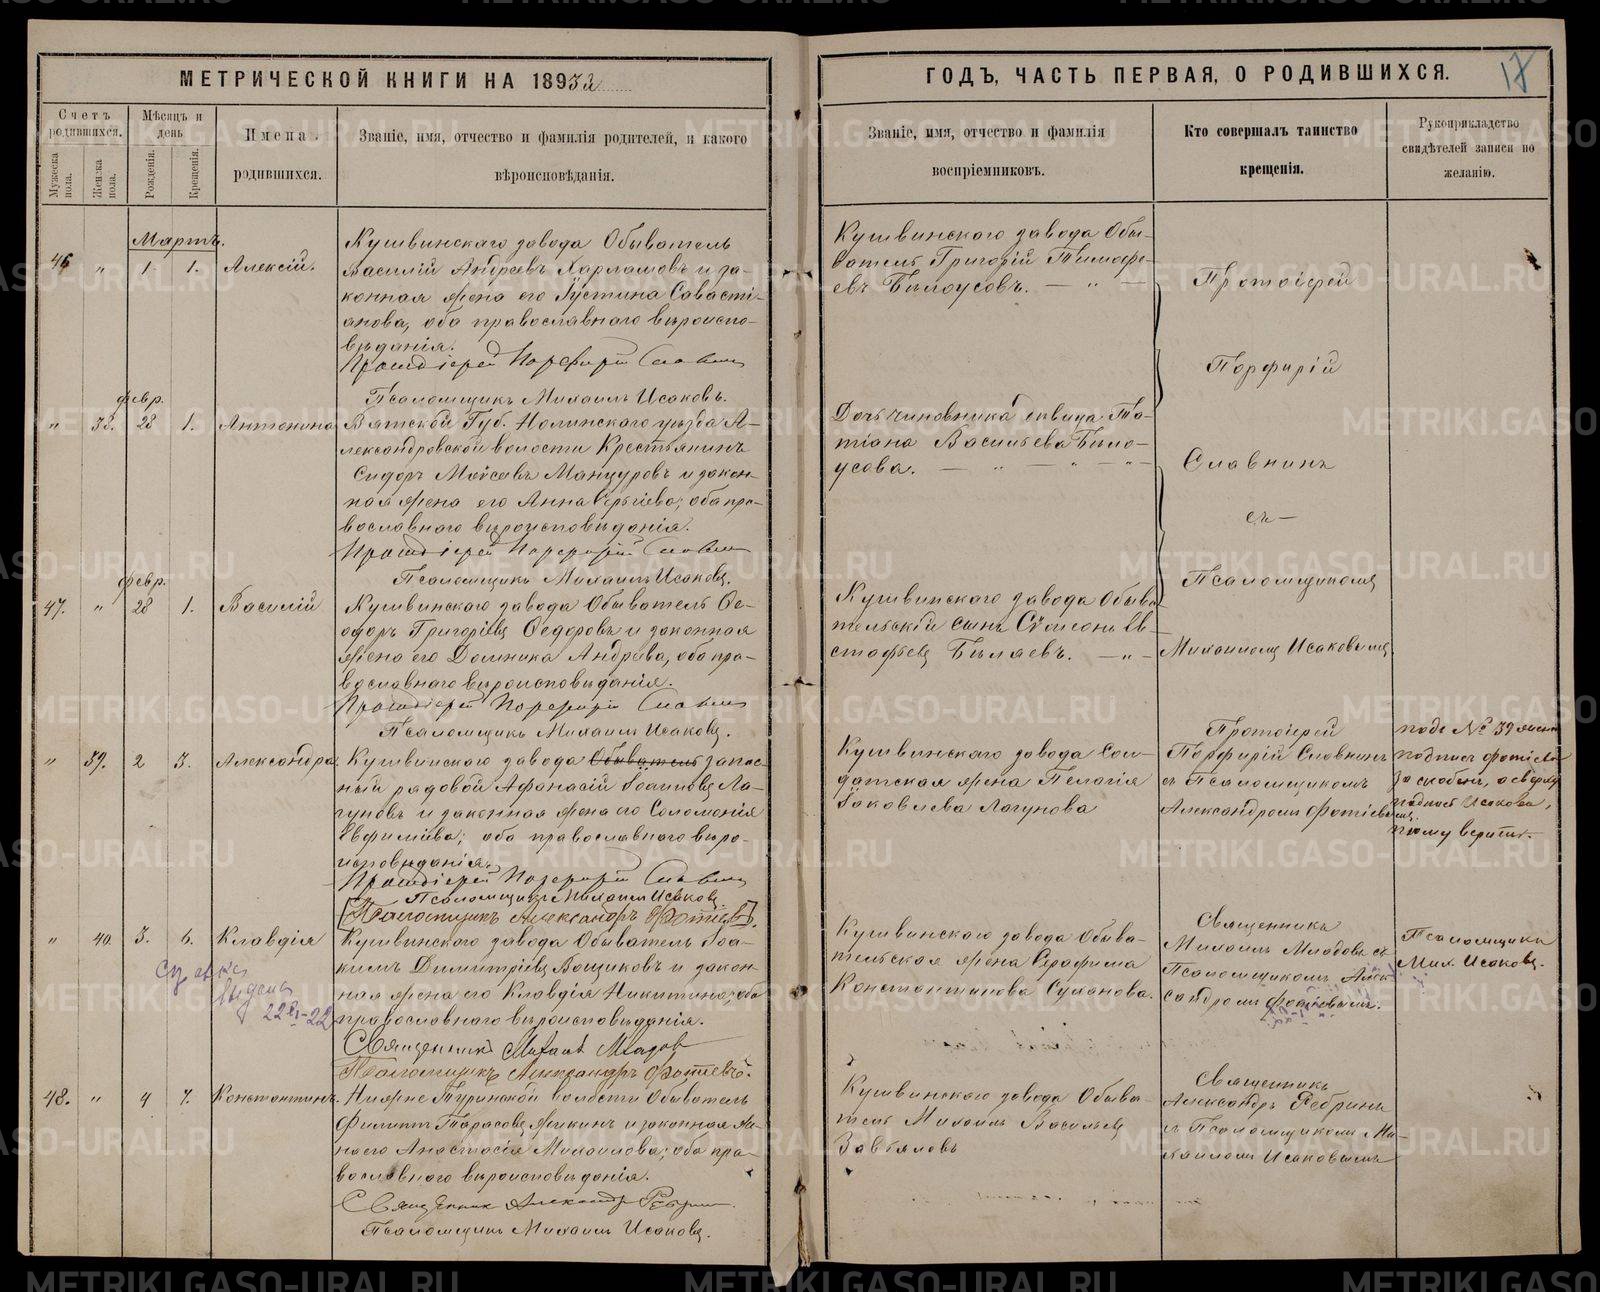 МЕТРИЧЕСКОЙ КНИГИ НА 1893
ГОДЪ, ЧАСТЬ ПЕРВАЯ, О РОДИВШИХСЯ.
17
Счетъ родившихся.
Мужеска пола.
Женска пола.
Мѣсяцъ и день
Рожденія.
Крещенія.
Имена родившихся.
Званіе, имя, отчество и фамилія родителей, и какого
вѣроисповѣданія.
Званіе, имя, отчество и фамилія
воспріемниковъ.
Кто совершалъ таинство
крещенія.
Рукоприкладство
свидѣтелей записи по
желанію.
Мартъ.
46 " 1 1. Алексій.
Кушвинскаго завода Обыватель
Василій Андреевъ Харламовъ и за-
конная жена его Іустина Савасті-
анова, оба православнаго вѣроиспо-
вѣданія.
Протоіерей Порфирій Славнин
Псаломщикъ Михаилъ Исаковъ.
Кушвинскаго завода Обы-
ватель Григорій Тимофе-
евъ Бѣлоусовъ. — " —
Протоіерей
Порфирій
Славнинъ
съ —
Псаломщикомъ
Михаиломъ Исаковымъ.
февр.
" 38. 28 1. Антонина
Вятской Губ. Нолинскаго уѣзда А-
лександровской волости Крестьянинъ
Сидоръ Моѵсеевъ Манцуровъ и закон-
ная жена его Анна Сергіева, оба пра-
вославнаго вѣроисповѣданія.
Протоіерей Порфирій Славнин
Псаломщикъ Михаилъ Исаковъ.
Дочь чиновника девица Та-
тіана Васильева Бѣло-
усова. — " — " — " —
февр.
47. " 28 1. Василій
Кушвинскаго завода Обыватель Ѳе-
одоръ Григоріевъ Ѳедоровъ и законная
жена его Домника Андреева, оба пра-
вославнаго вѣроисповѣданія.
Протоіерей Порфирій Славнин
Псаломщикъ Михаилъ Исаковъ.
Кушвинскаго завода Обыва-
тельскій сынъ Сѵмеонъ Ев-
стафьевъ Бѣляевъ. — " —
" 39. 2 3. Александра
Кушвинскаго завода Обыватель запас-
ный рядовой Афанасій Іоанновъ Ла-
гуновъ и законная жена его Соломонія
Евфиміева; оба православнаго вѣро-
исповѣданія.
Протоіерей Порфирій Славнин
Псаломщикъ Михаилъ Исаковъ.
[Псаломщикъ Александръ Фотіевъ].
Кушвинскаго завода Сол-
датская жена Пелагія
Іаковлева Лагунова
Протоіерей
Порфирій Славнинъ
съ Псаломщикомъ
Александромъ Фотіевымъ.
подъ № 39
подпись Фотіева
за скобки, а сверху
подпись Исакова,
тому верить.
" 40. 3. 6. Клавдія
Кушвинскаго завода Обыватель Іоа-
кимъ Димитріевъ Ванчиковъ и закон-
ная жена его Клавдія Никитина, оба
православнаго вѣроисповѣданія.
Священникъ Михаилъ Младов
Псаломщикъ Александръ Фотіевъ.
22 22
Кушвинскаго завода Обыва-
тельская жена Серафима
Константинова Суханова.
Священникъ
Михаилъ Младовъ съ
Псаломщикомъ Алек-
сандромъ Фотіевымъ.
Псаломщикъ
Мих. Исаковъ.
48. " 4 7. Константинъ.
Нижне Туринской волости Обыватель
Филиппъ Тарасовъ Яикинъ и законная же-
на его Анастасія Михаилова; оба пра-
вославнаго вѣроисповѣданія.
Священникъ Александръ Ребрин.
Псаломщикъ Михаилъ Исаковъ.
Кушвинскаго завода Обыва-
тель Михаилъ Васильевъ
Завьяловъ
Священникъ
Александръ Ребринъ
съ Псаломщикомъ Ми-
хаиломъ Исаковымъ
METRIKI.GASO-URAL.RU